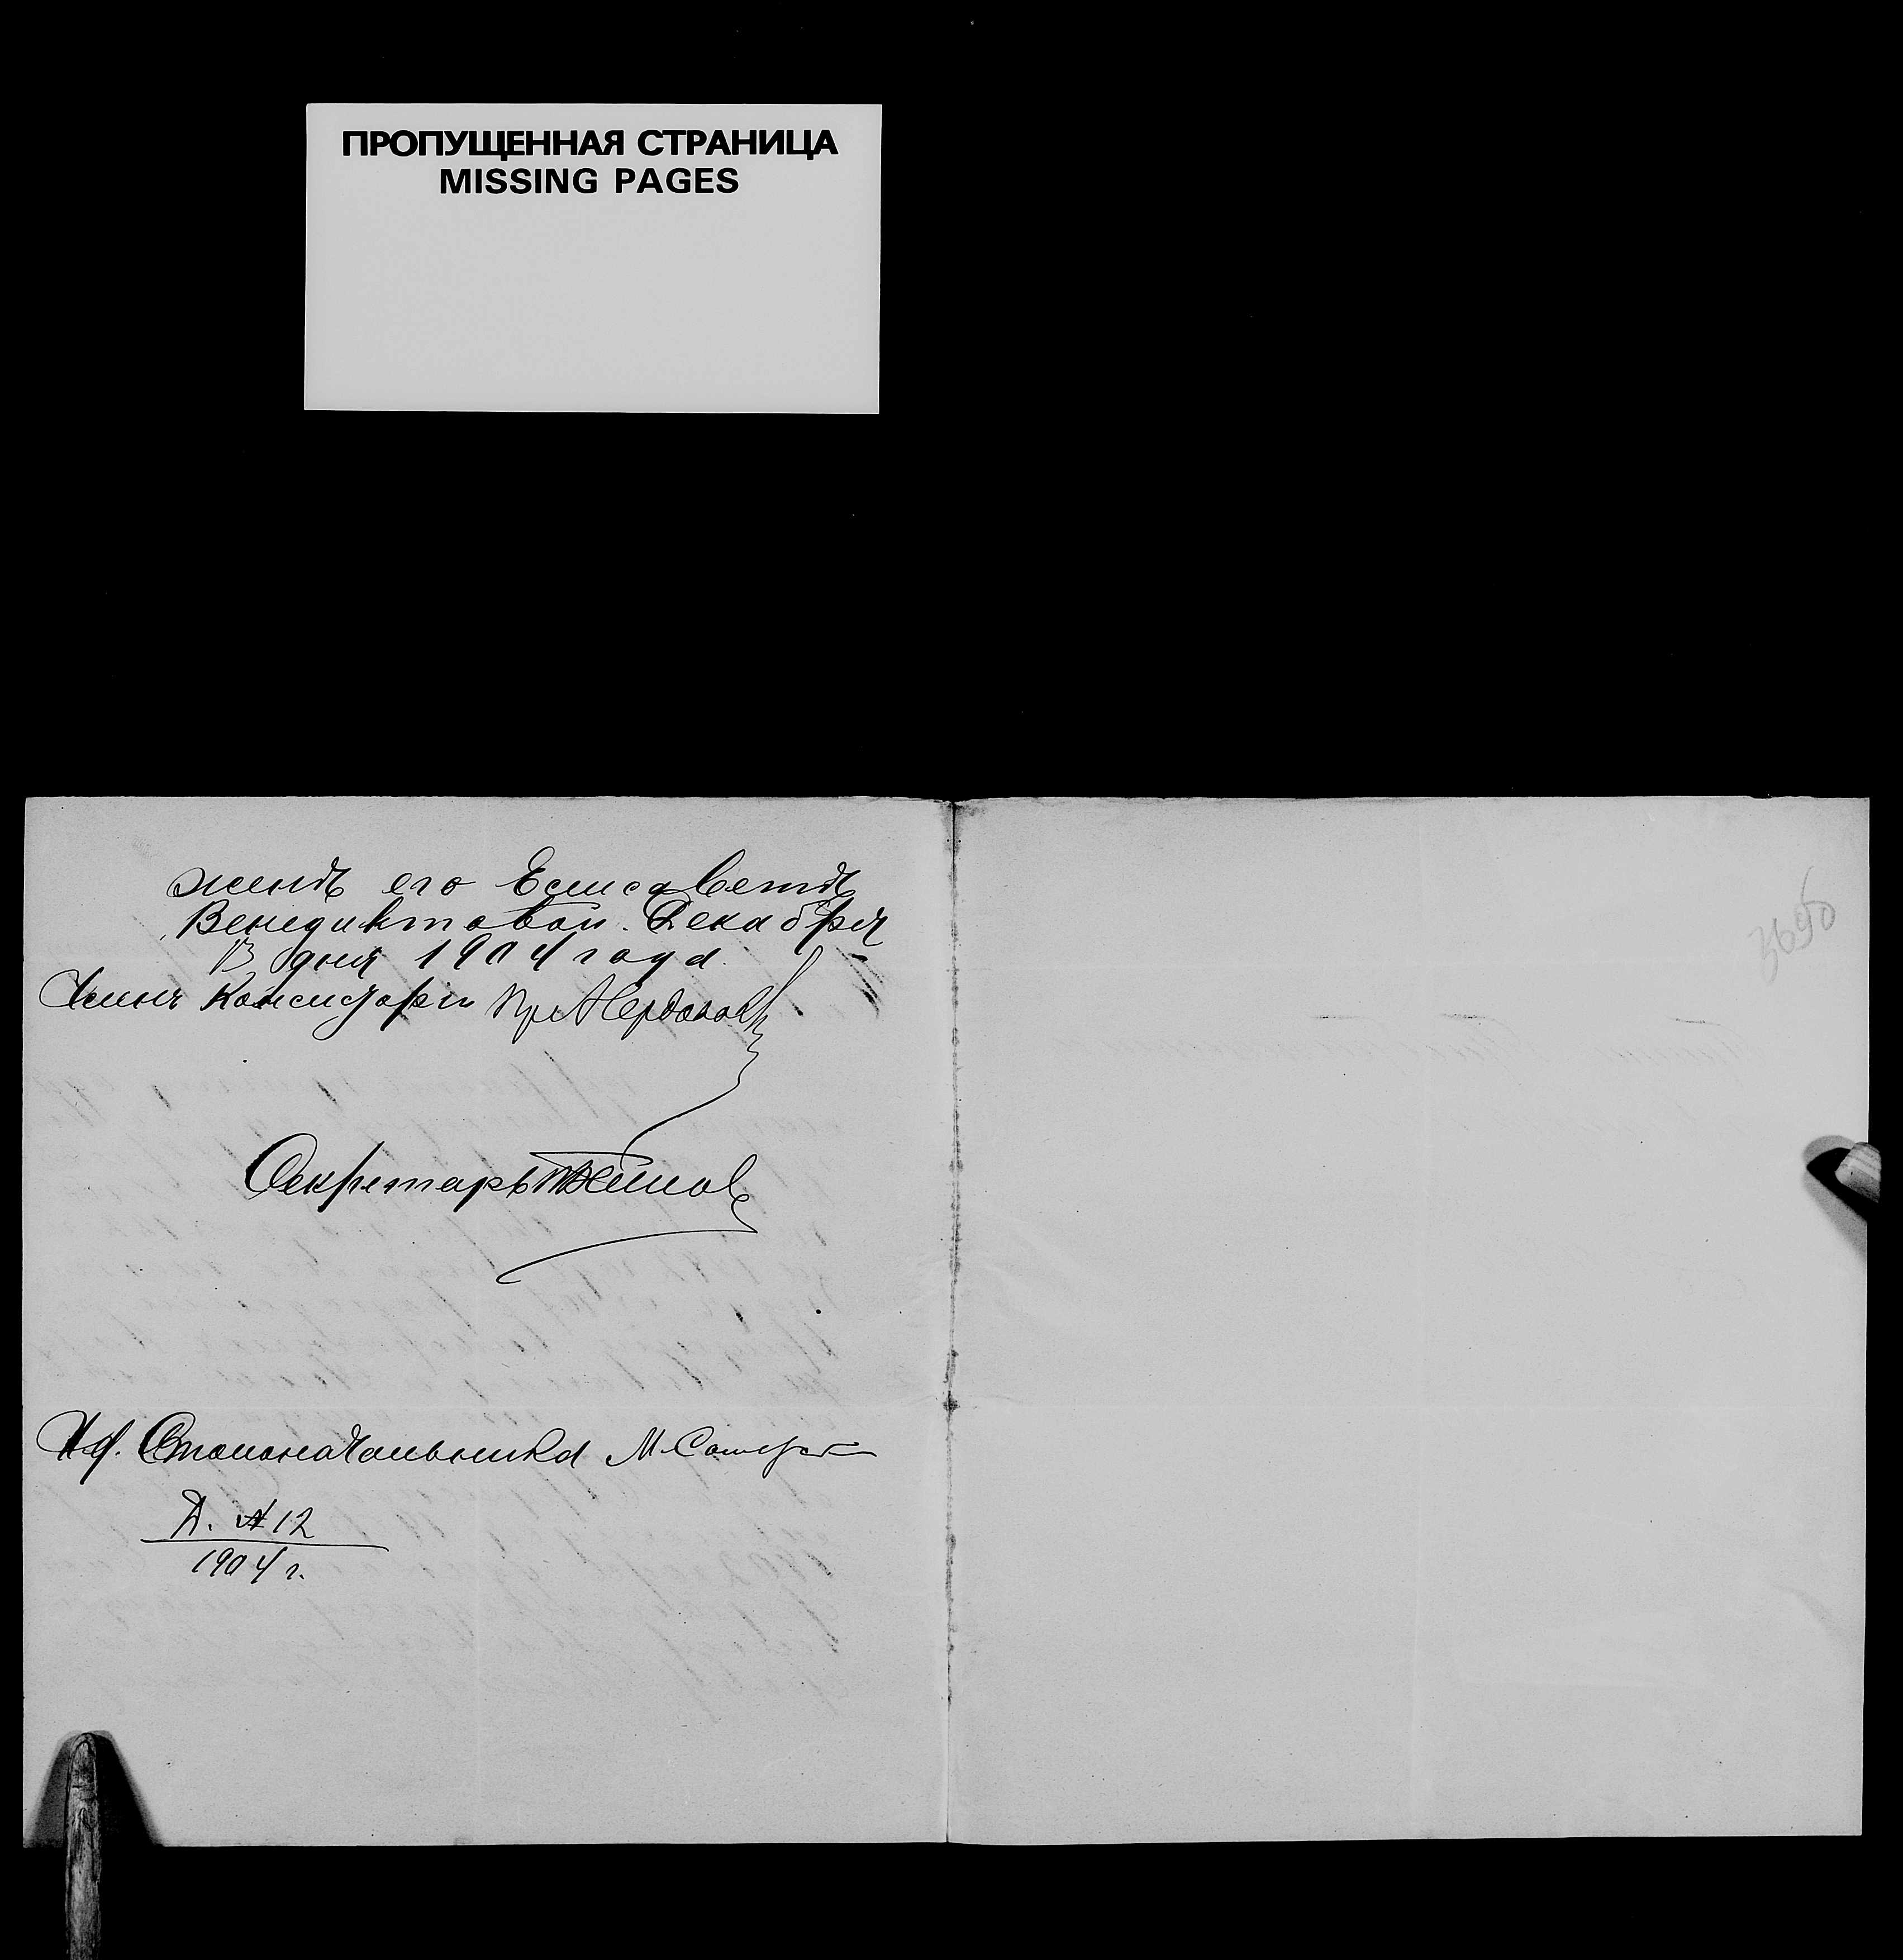 ПРОПУЩЕННАЯ СТРАНИЦА
MISSING PAGES
женѣ его Елисаветѣ
Венедиктовой. Декабря
13 дня 1904 года.
Членъ Консисторіи
Секретарь
И. д. Столоначальника М.
Д. № 12
1904 г.